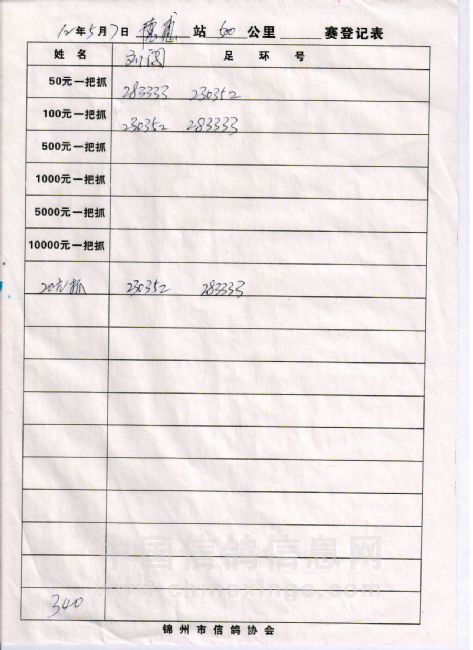 12年5月7日 德惠 站 500 公里 赛登记表
姓名 刘闯 足环号
50元一把抓 283333 230352
100元一把抓 230352 283333
500元一把抓
1000元一把抓
5000元一把抓
10000元一把抓
20元抓 230352 283333
340
中国信鸽信息网
www.chinaxinge.com
锦州市信鸽协会